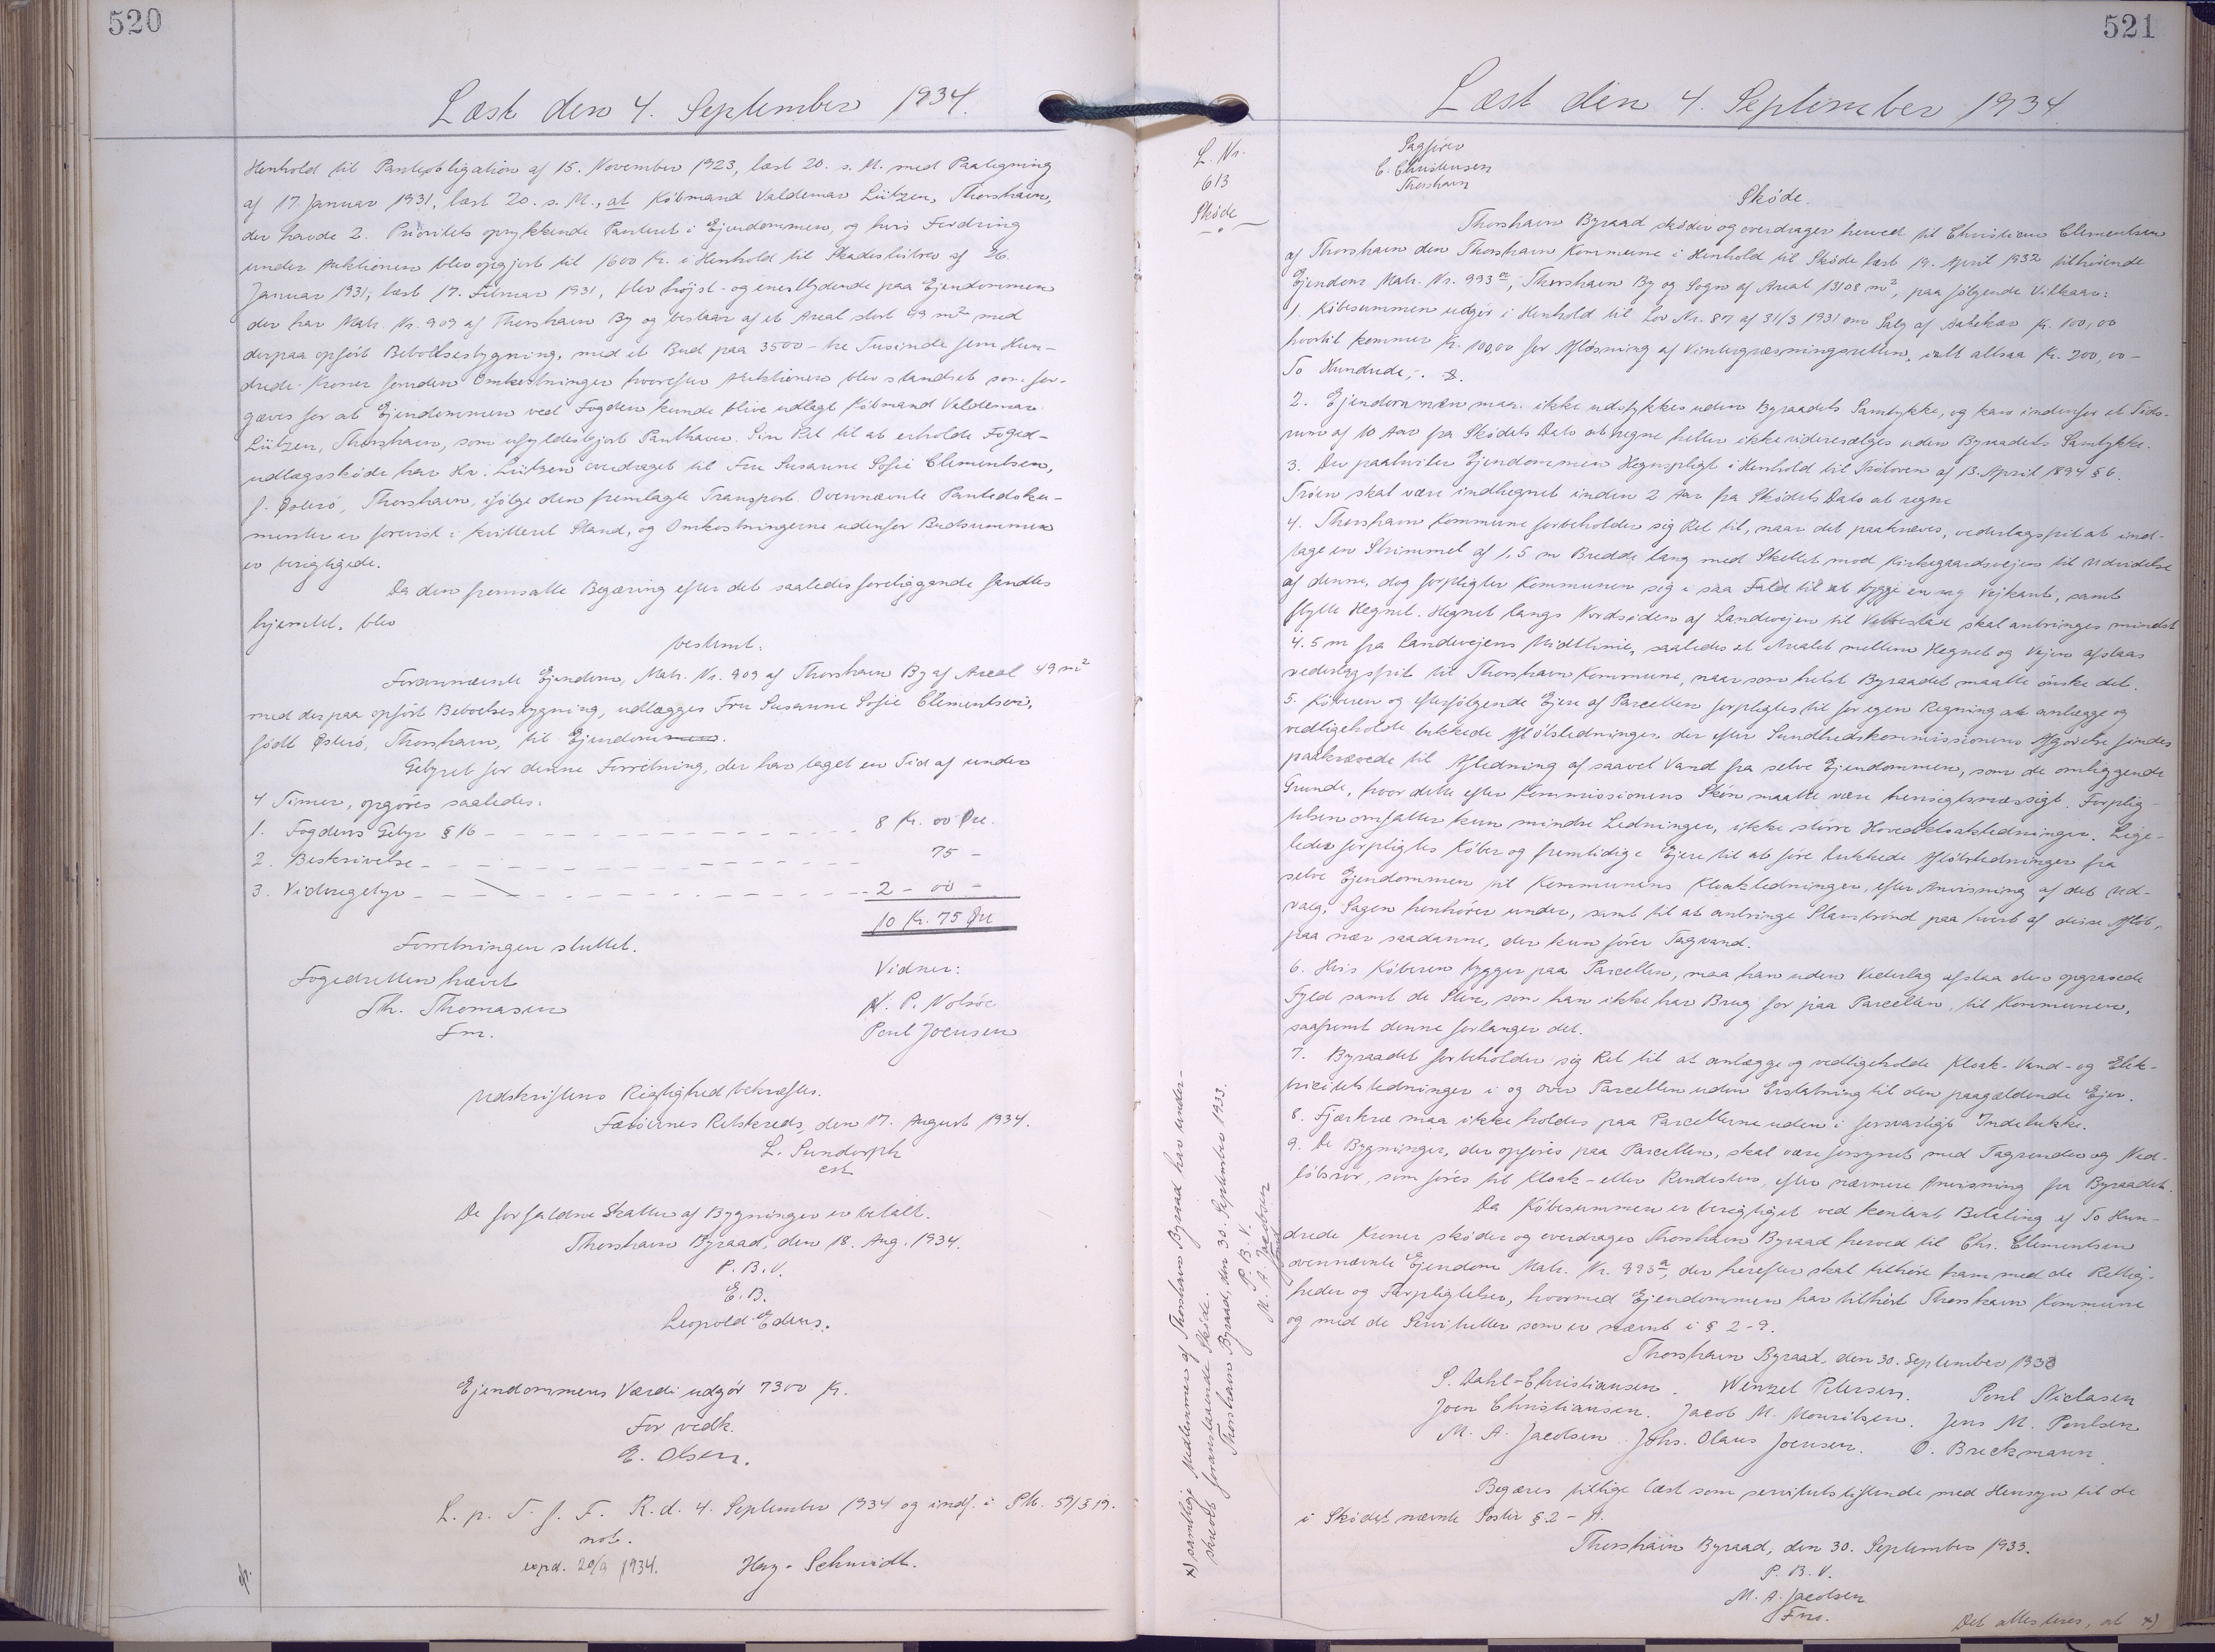 520
Læst den 4. September 1934.
Henhold til Panteobligation af 15. November 1923, læst 20. s. M. med Paategning
af 17. Januar 1931, læst 20. s. M., at Købmand Valdemar Lützen, Thorshavn,
der havde 2. Prioritets oprykkende Panteret i Ejendommen, og hvis Fordring
under Auktionen blev opgjort til 1600 Kr. i Henhold til Skadesløsbrev af 26.
Januar 1931, læst 17. Februar 1931, blev højst- og enestbydende paa Ejendommen
der har Matr. Nr. 909 af Thorshavn By og bestaar af et Areal stort 49 m² med
derpaa opført Beboelsesbygning, med et Bud paa 3500 - tre Tusinde fem Hun-
drede - Kroner foruden Omkostninger hvorefter Auktionen blev standset som for-
gæves for at Ejendommen ved Fogden kunde blive udlagt Købmand Valdemar
Lützen, Thorshavn, som ufyldestgjort Panthaver. Sin Ret til at erholde Foged-
udlægsskøde har Hr. Lützen overdraget til Fru Susanne Sofie Clementsen,
f. Østerø, Thorshavn, ifølge den fremlagte Transport. Ovennævnte Pantedoku-
menter er forevist i kvitteret Stand, og Omkostningerne udenfor Budsummen
er berigtigede.
Da den fremsatte Begæring efter det saaledes foreliggende fandtes
hjemlet, blev
bestemt:
Forannævnte Ejendom, Matr. Nr. 909 af Thorshavn By af Areal 49 m²
med derpaa opført Beboelsesbygning, udlægges Fru Susanne Sofie Clementsen,
født Østerø, Thorshavn, til Ejendom.
Gebyret for denne Forretning, der har taget en Tid af under
4 Timer, opgøres saaledes:
1. Fogdens Gebyr § 16 - - - 8 Kr. 00 Øre.
2. Beskrivelse - - - 75 -
3. Vidnegebyr - - - 2 - 00 -
10 Kr. 75 Øre
Forretningen sluttet.
Fogedretten hævet
Th. Thomasen
Fm.
Vidner:
N. P. Nolsøe
Poul Joensen
Udskriftens Rigtighed bekræftes.
Færøernes Retskreds, den 17. August 1934.
L. Sundorph
cst.
De forfaldne Skatter af Bygningen er betalt.
Thorshavn Byraad, den 18. Aug. 1934.
P. B. V.
E. B.
Leopold Edens.
Ejendommens Værdi udgør 7300 Kr.
For vedk.
E. Olsen.
L. p. T. f. F. R. d. 4. September 1934 og indf. i SPr. 59/519.
not.
expd. 20/9 1934. Hey-Schmidt.
521
Læst den 4. September 1934
L. Nr.
613
Skøde
Sagfører
C. Christensen
Thorshavn
Skøde.
Thorshavn Byraad skøder og overdrager herved til Christian Clementsen
af Thorshavn den Thorshavn Kommune i Henhold til Skøde læst 19. April 1932 tilhørende
Ejendom Matr. Nr. 993ª, Thorshavn By og Sogn af Areal 13108 m², paa følgende Vilkaar:
1. Købesummen udgør i Henhold til Lov Nr. 87 af 31/3 1931 om Salg af Kr. 100,00
hvortil kommer Kr. 100,00 for Afløsning af Vintergræsningsretten, ialt altsaa Kr. 200,00 -
To Hundrede,-.
2. Ejendommen maa ikke udstykkes uden Byraadets Samtykke, og kan indenfor et Tids-
rum af 10 Aar fra Skødets Dato at regne heller ikke videresælges uden Byraadets Samtykke.
3. Der paahviler Ejendommen Hegnspligt i Henhold til Trøloven af 13. April 1894 § 6.
Trøen skal være indhegnet inden 2 Aar fra Skødets Dato at regne
4. Thorshavn Kommune forbeholder sig Ret til, naar det paakræves, vederlagsfrit at ind-
tage en Strimmel af 1,5 m Bredde lang med Skellet mod Kirkegaardsvejen til Udvidelse
af denne, dog forpligter Kommunen sig i saa Fald til at bygge en ny Vejkant, samt
flytte Hegnet. Hegnet langs Nordsiden af Landevejen til Velbestad skal anbringes mindst
4.5 m fra Landevejens Midtlinie, saaledes at Arealet mellem Hegnet og Vejen afstaas
vederlagsfrit til Thorshavn Kommune, naar som helst Byraadet maatte ønske det.
5. Køberen og efterfølgende Ejere af Parcellen forpligtes til for egen Regning at anlægge og
vedligeholde lukkede Afløbsledninger, der efter Sundhedskommissionens Afgørelse findes
paakrævede til Afledning af saavel Vand fra selve Ejendommen, som de omliggende
Grunde, hvor dette efter Kommissionens Skøn maatte være hensigtsmæssigt. Forplig-
telsen omfatter kun mindre Ledninger, ikke større Hovedkloakledninger. Lige-
ledes forpligtes Køber og fremtidige Ejere til at føre lukkede Afløbsledninger fra
selve Ejendommen til Kommunens Kloakledninger, efter Anvisning af det Ud-
valg, Sagen henhører under, samt til at anbringe Slambrønd paa hvert af disse Afløb,
paa nær saadanne, der kun fører Tagvand.
6. Hvis Køberen bygger paa Parcellen, maa han uden Vederlag afstaa den opgravede
Fyld samt de Sten, som han ikke har Brug for paa Parcellen, til Kommunen,
saafremt denne forlanger det.
7. Byraadet forbeholder sig Ret til at anlægge og vedligeholde Kloak- Vand- og Elek-
tricitetsledninger i og over Parcellen uden Erstatning til den paagældende Ejer.
8. Fjærkræ maa ikke holdes paa Parcellerne uden i forsvarligt Indelukke.
9. De Bygninger, der opføres paa Parcellen, skal være forsynet med Tagrender og Ned-
løbsrør, som føres til Kloak- eller Rendesten, efter nærmere Anvisning fra Byraadet.
Da Købesummen er berigtiget ved kontant Betaling af To Hun-
drede Kroner skøder og overdrager Thorshavn Byraad herved til Chr. Clementsen
ovennævnte Ejendom Matr. Nr. 993ª, der herefter skal tilhøre ham med de Rettig-
heder og Forpligtelser, hvormed Ejendommen har tilhørt Thorshavn Kommune
og med de Servitutter som er nævnt i § 2-9.
Thorshavn Byraad, den 30. September 1933
P. Dahl-Christiansen. Wenzel Petersen. Poul Niclasen
Joen Christiansen. Jacob M. Mouritsen. Jens M. Poulsen
M. A. Jacobsen Johs. Olaus Joensen. O. Breckmann
Begæres tillige læst som servitutstiftende med Hensyn til de
i Skødet nævnte Poster § 2 - 9.
Thorshavn Byraad, den 30. September 1933.
P. B. V.
M. A. Jacobsen
Fm.
Det attesteres, at x)
x) samtlige Medlemmer af Thorshavn Byraad har under-
skrevet foranstaaende Skøde.
Thorshavn Byraad, den 30. September 1933.
P. B. V.
M. A. Jacobsen